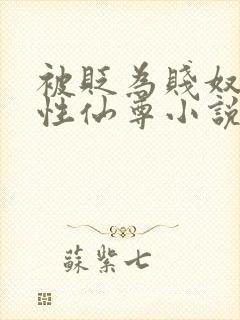 被貶為賤奴
性仙尊小說
蘇紫七